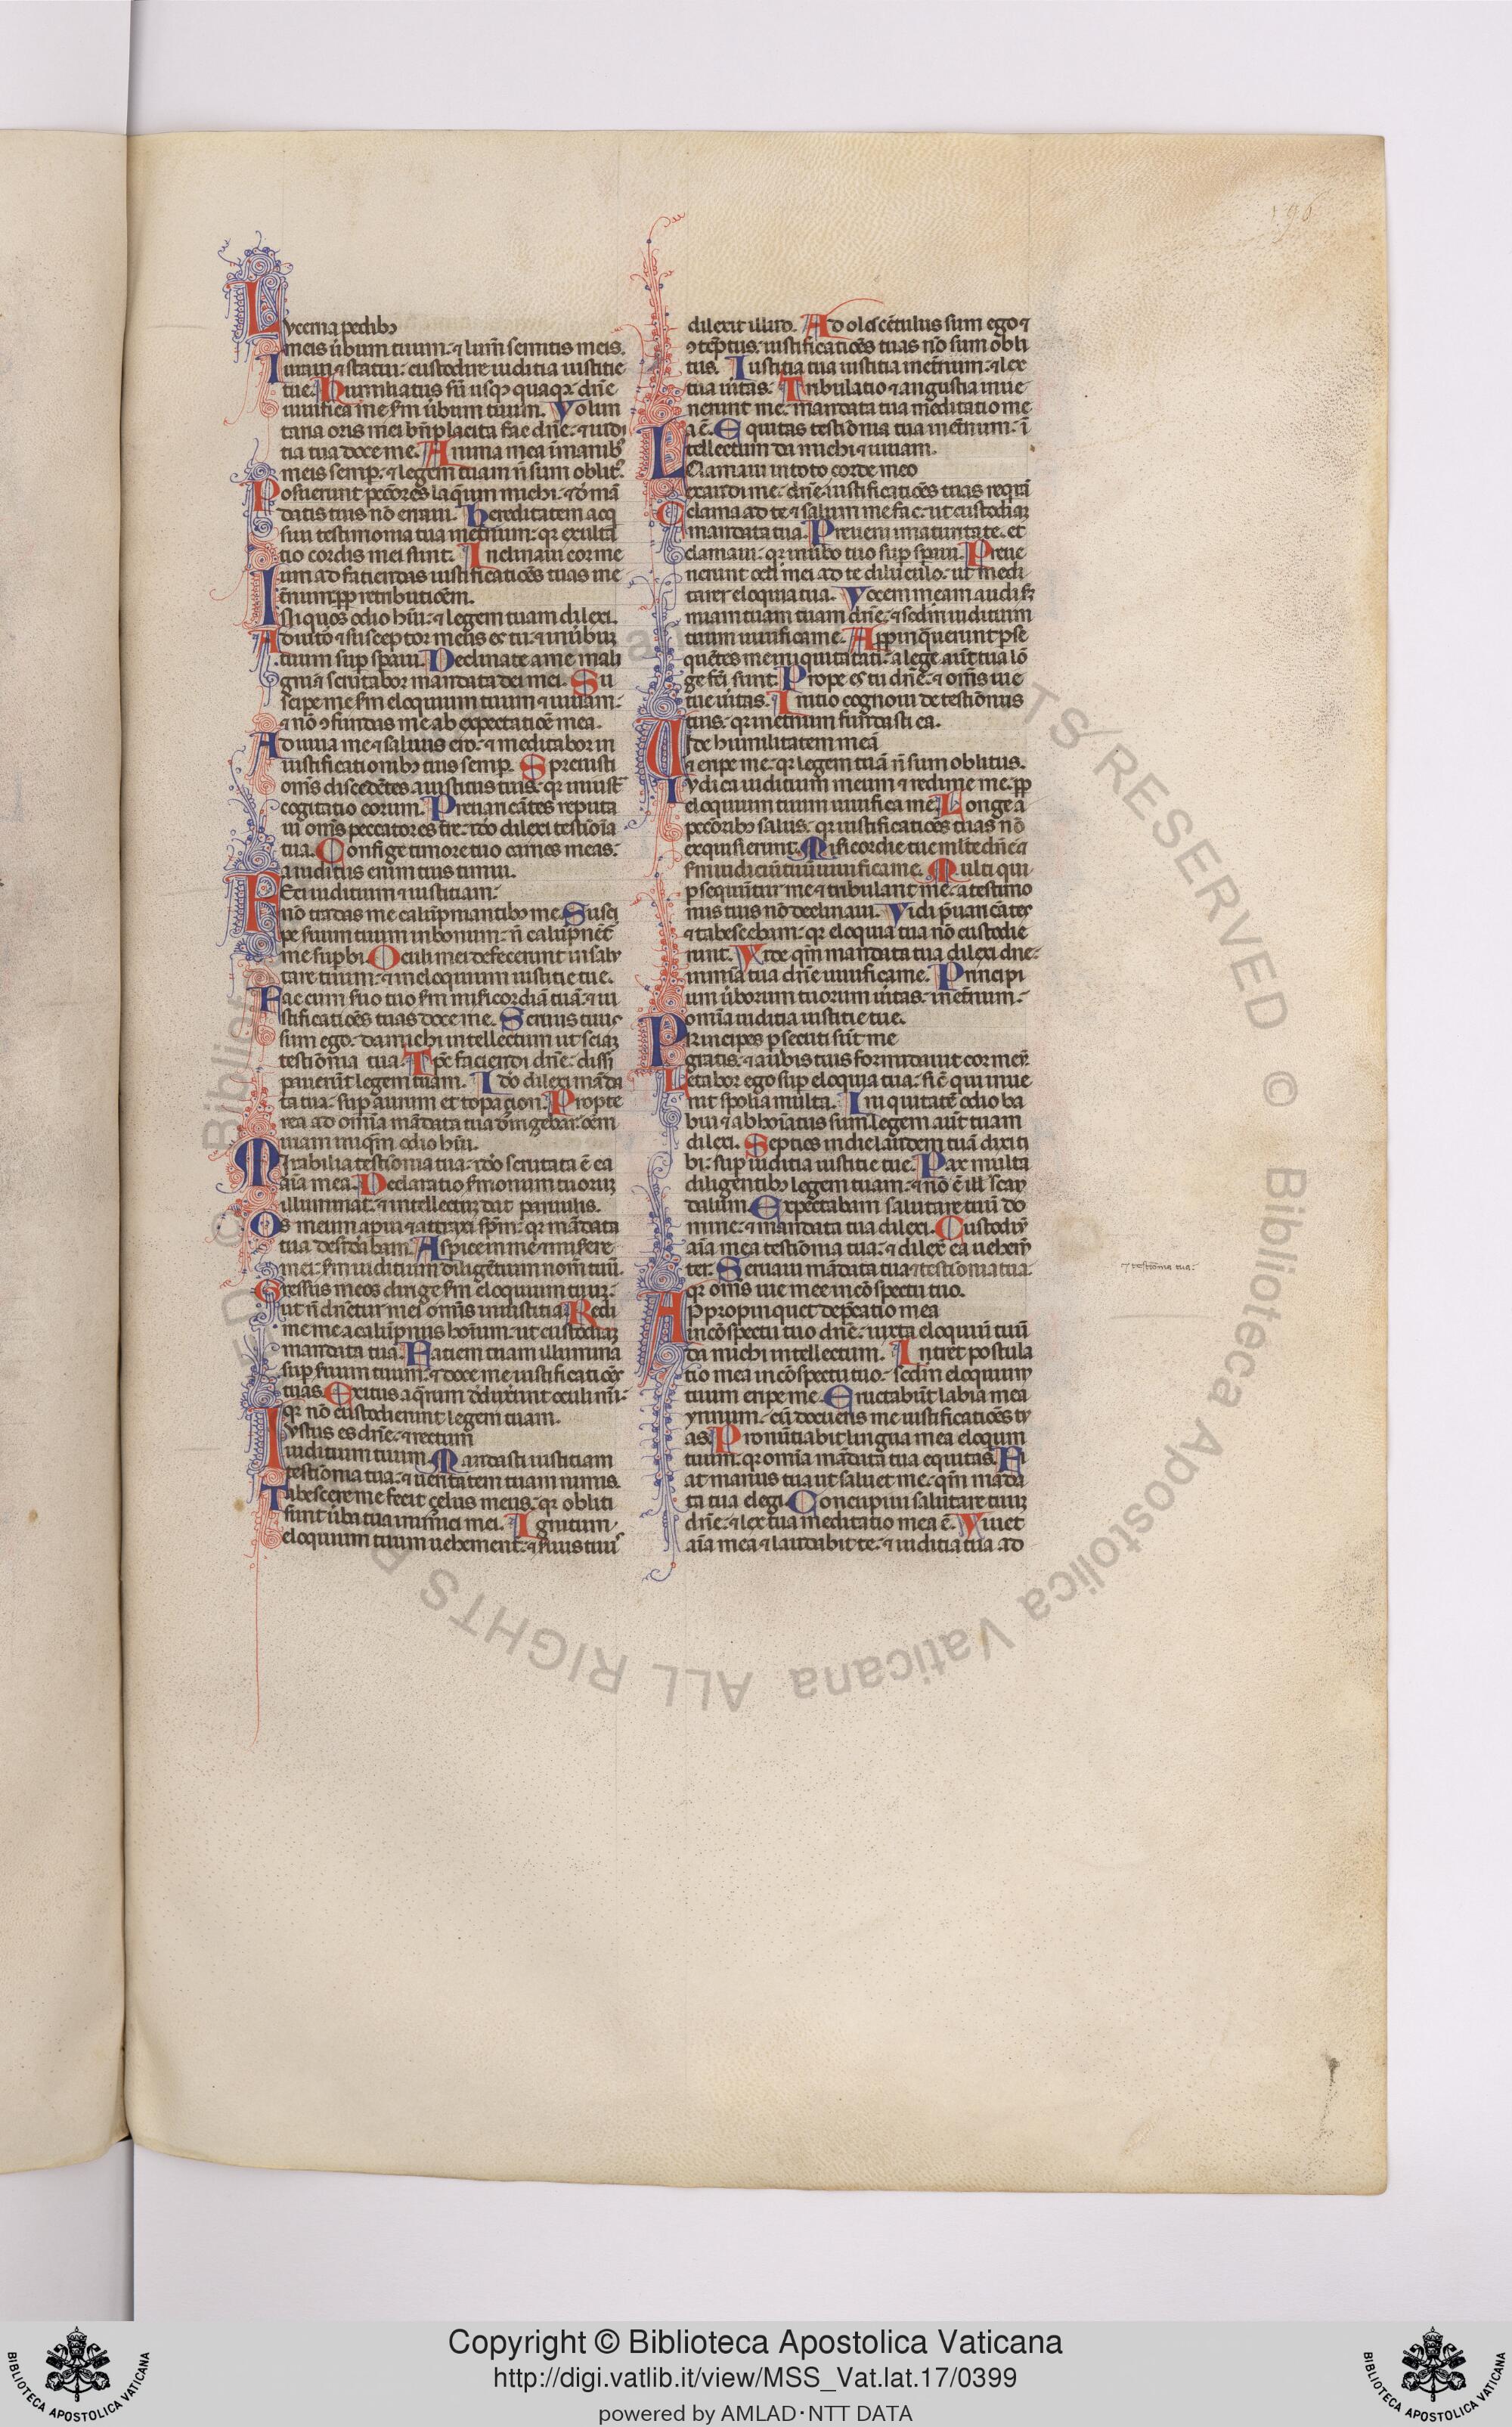 196
Lucerna pedibꝫ
meis ûbum tuum ⁊ lum̄ semitis meis.
Iuraui ⁊ statui custodire iuditia iustitie
tue. Humiliatus sū usqꝫ quaqꝫ dn̄e
uiuifica me sm ûbum tuum. Volun
taria oris mei bn̄placita fac dn̄e ⁊ iudi
tia tua doce me. Anima mea ī manibꝰ
meis semp ⁊ legem tuam n̄ sum oblitꝰ.
Posuerunt peccōres laq̄um michi ⁊ d̄ mā
datis tuis nō erraui. Hereditatem acq
siui testimonia tua inet̄num qr exulta
tio cordis mei sunt. Inclinaui cor me
um ad faciendas iustificatiōēs tuas in e
t̄num ꝓp retributiōem.
Iniquos odio hūi ⁊ legem tuam dilexi.
Adiutor ⁊ susceptor meus es tu ⁊ in ûbuꝫ
tuum sup sp̄aui. Declinate a me mali
gni ⁊ scrutabor mandata dei mei. Su
scipe me sm eloquium tuum ⁊ uiuam
⁊ nō ↄfundas me ab expectatiōē mea.
Adiuua me ⁊ saluus ero ⁊ meditabor in
iustificationibꝫ tuis semp. Spreuisti
om̄s discedētes a iustitiis tuis qr iniusta
cogitatio eorum. Preuaricātes reputa
ui om̄s peccatores tr̄e ido dilexi testiōia
tua. Confige timore tuo carnes meas
a iuditiis enim tuis timui.
Feci iuditium ⁊ iustitiam
nō tradas me calūpniantibꝫ me. Susci
pe suum tuum in bonum n̄ calūpnēt
me supbi. Oculi mei defecerunt in salu
tare tuum ⁊ in eloquium iustitie tue.
Fac cum suo tuo sm misericordiā tuā ⁊ iu
stificatiōēs tuas doce me. Seruus tuus
sum ego da michi intellectum ut sciaꝫ
testiōnia tua. Tp̄c faciendi dn̄e dissi
pauerūt legem tuam. Ido dilexi māda
ta tua sup aurum et topacion. Propte
rea ad omīa mādata tua dirigebar oēm
uiam iniqm odio hūi.
Mirabilia testiōnia tua ido scrutata ē ea
aīa mea. Declaratio sermonum tuoruꝫ
illuminat ⁊ intellectuꝫ dat paruulis.
Os meum aperui ⁊ attraxi sp̄m qr mādata
tua desid̄abam. Aspice in me ⁊ misere
mei sm iuditium diligētium nom̄ tuū.
Gressus meos dirige sm eloquium tuuꝫ
ut n̄ dn̄etur mei omnis iniustitia. Redi
me me a calūpniis hoīum ut custodiaꝫ
mandata tua. Faciem tuam illumina
sup suum tuum ⁊ doce me iustificatiōēs
tuas. Exitus aq̄rum deduxerunt oculi mī
qr nō custodierunt legem tuam.
Iustus es dn̄e ⁊ rectum
iuditium tuum. Mandasti iustitiam
testiōnia tua ⁊ ueritatem tuam nimis.
Tabescere me fecit çelus meus qr obliti
sunt ûba tua inimici mei. Ignitum
eloquium tuum uehement̄ ⁊ suus tuus
dilexit illud. Adolescētulus sum ego ⁊
ↄtēptus iustificatiōēs tuas nō sum obli
tus. Iustitia tua iustitia inet̄num ⁊ lex
tua ûitas. Tribulatio ⁊ angustia inue
nerunt me mandata tua meditatio me
a ē. Equitas testiōnia tua inet̄num ī
tellectum da michi ⁊ uiuam.
Clamaui in toto corde meo
exaudi me dn̄e iustificatiōēs tuas requirā
Clamaui ad te ⁊ saluum me fac ut custodiaꝫ
mandata tua. Preueni in maturitate et
clamaui qr in ûbo tuo sup sp̄aui. Preue
nerunt ocli mei ad te diluculo ut medi
tarer eloquia tua. Vocem meam audi sꝫ
miam tuam tuam dn̄e ⁊ sedm iuditium
tuum uiuifica me. Appinquerunt pse
quētes me iniquitatati a lege aūt tua lō
ge fc̄i sunt. Prope es tu dn̄e ⁊ om̄s uie
tue ûitas. Initio cognoui de testiōniis
tuis qr inet̄num fundasti ea.
Vide humilitatem meā
⁊ eripe me qr legem tuā n̄ sum oblitus.
Iudica iuditium meum ⁊ redime me ꝓp
eloquium tuum uiuifica me. Longe a
peccōribꝫ salus qr iustificatiōēs tuas nō
exquisierunt. Misericordie tue multe dn̄e
sm iudiciū tuū uiuifica me. Multi qui
psequūtur me ⁊ tribulant me a testimo
niis tuis nō declinaui. Vidi p̄uaricātes
⁊ tabescebam qr eloquia tua nō custodie
runt. Vide qm̄ mandata tua dilexi dn̄e
in mīa tua dn̄e uiuifica me. Principi
um ûborum tuorum ûitas inet̄num
omīa iuditia iustitie tue.
Principes psecuti sūt me
gratis ⁊ a ûbis tuis formidauit cor meū.
Letabor ego sup eloquia tua sic̄ qui inue
nit spolia multa. Iniquitatē odio ha
bui ⁊ abhoīatus sum legem aūt tuam
dilexi. Septies in die laudem tuā dixi ti
bi sup iuditia iustitie tue. Pax multa
diligentibꝫ legem tuam ⁊ nō ē ill̄ scan
dalum. Expectabam salutare tuū do
mine ⁊ mandata tua dilexi. Custodiuit
aīa mea testiōnia tua ⁊ dilexit ea uehem̄
ter. Seruaui mādata tua ⁊ testiōnia tua
qr om̄s uie mee in cōspectu tuo.
Appropinquet dep̄catio mea
in cōspectu tuo dn̄e iuxta eloquiū tuū
da michi intellectum. Intret postula
tio mea in cōspectu tuo sedm eloquium
tuum eripe me. Eructabūt labia mea
ymnum cū docueris me iustificatiōēs tu
as. Pronūtiabit lingua mea eloqium
tuum qr omīa mādata tua equitas. Fi
at manus tua ut saluet me qm̄ māda
ta tua elegi. Concupiui salutare tuuꝫ
dn̄e ⁊ lex tua meditatio mea ē. Viuet
aīa mea ⁊ laudabit te ⁊ iuditia tua ad
⁊ testiōnia tua
Copyright © Biblioteca Apostolica Vaticana
http://digi.vatlib.it/view/MSS_Vat.lat.17/0399
powered by AMLAD·NTT DATA
BIBLIOTECA APOSTOLICA VATICANA
BIBLIOTECA APOSTOLICA VATICANA
© Biblioteca Apostolica Vaticana ALL RIGHTS RESERVED